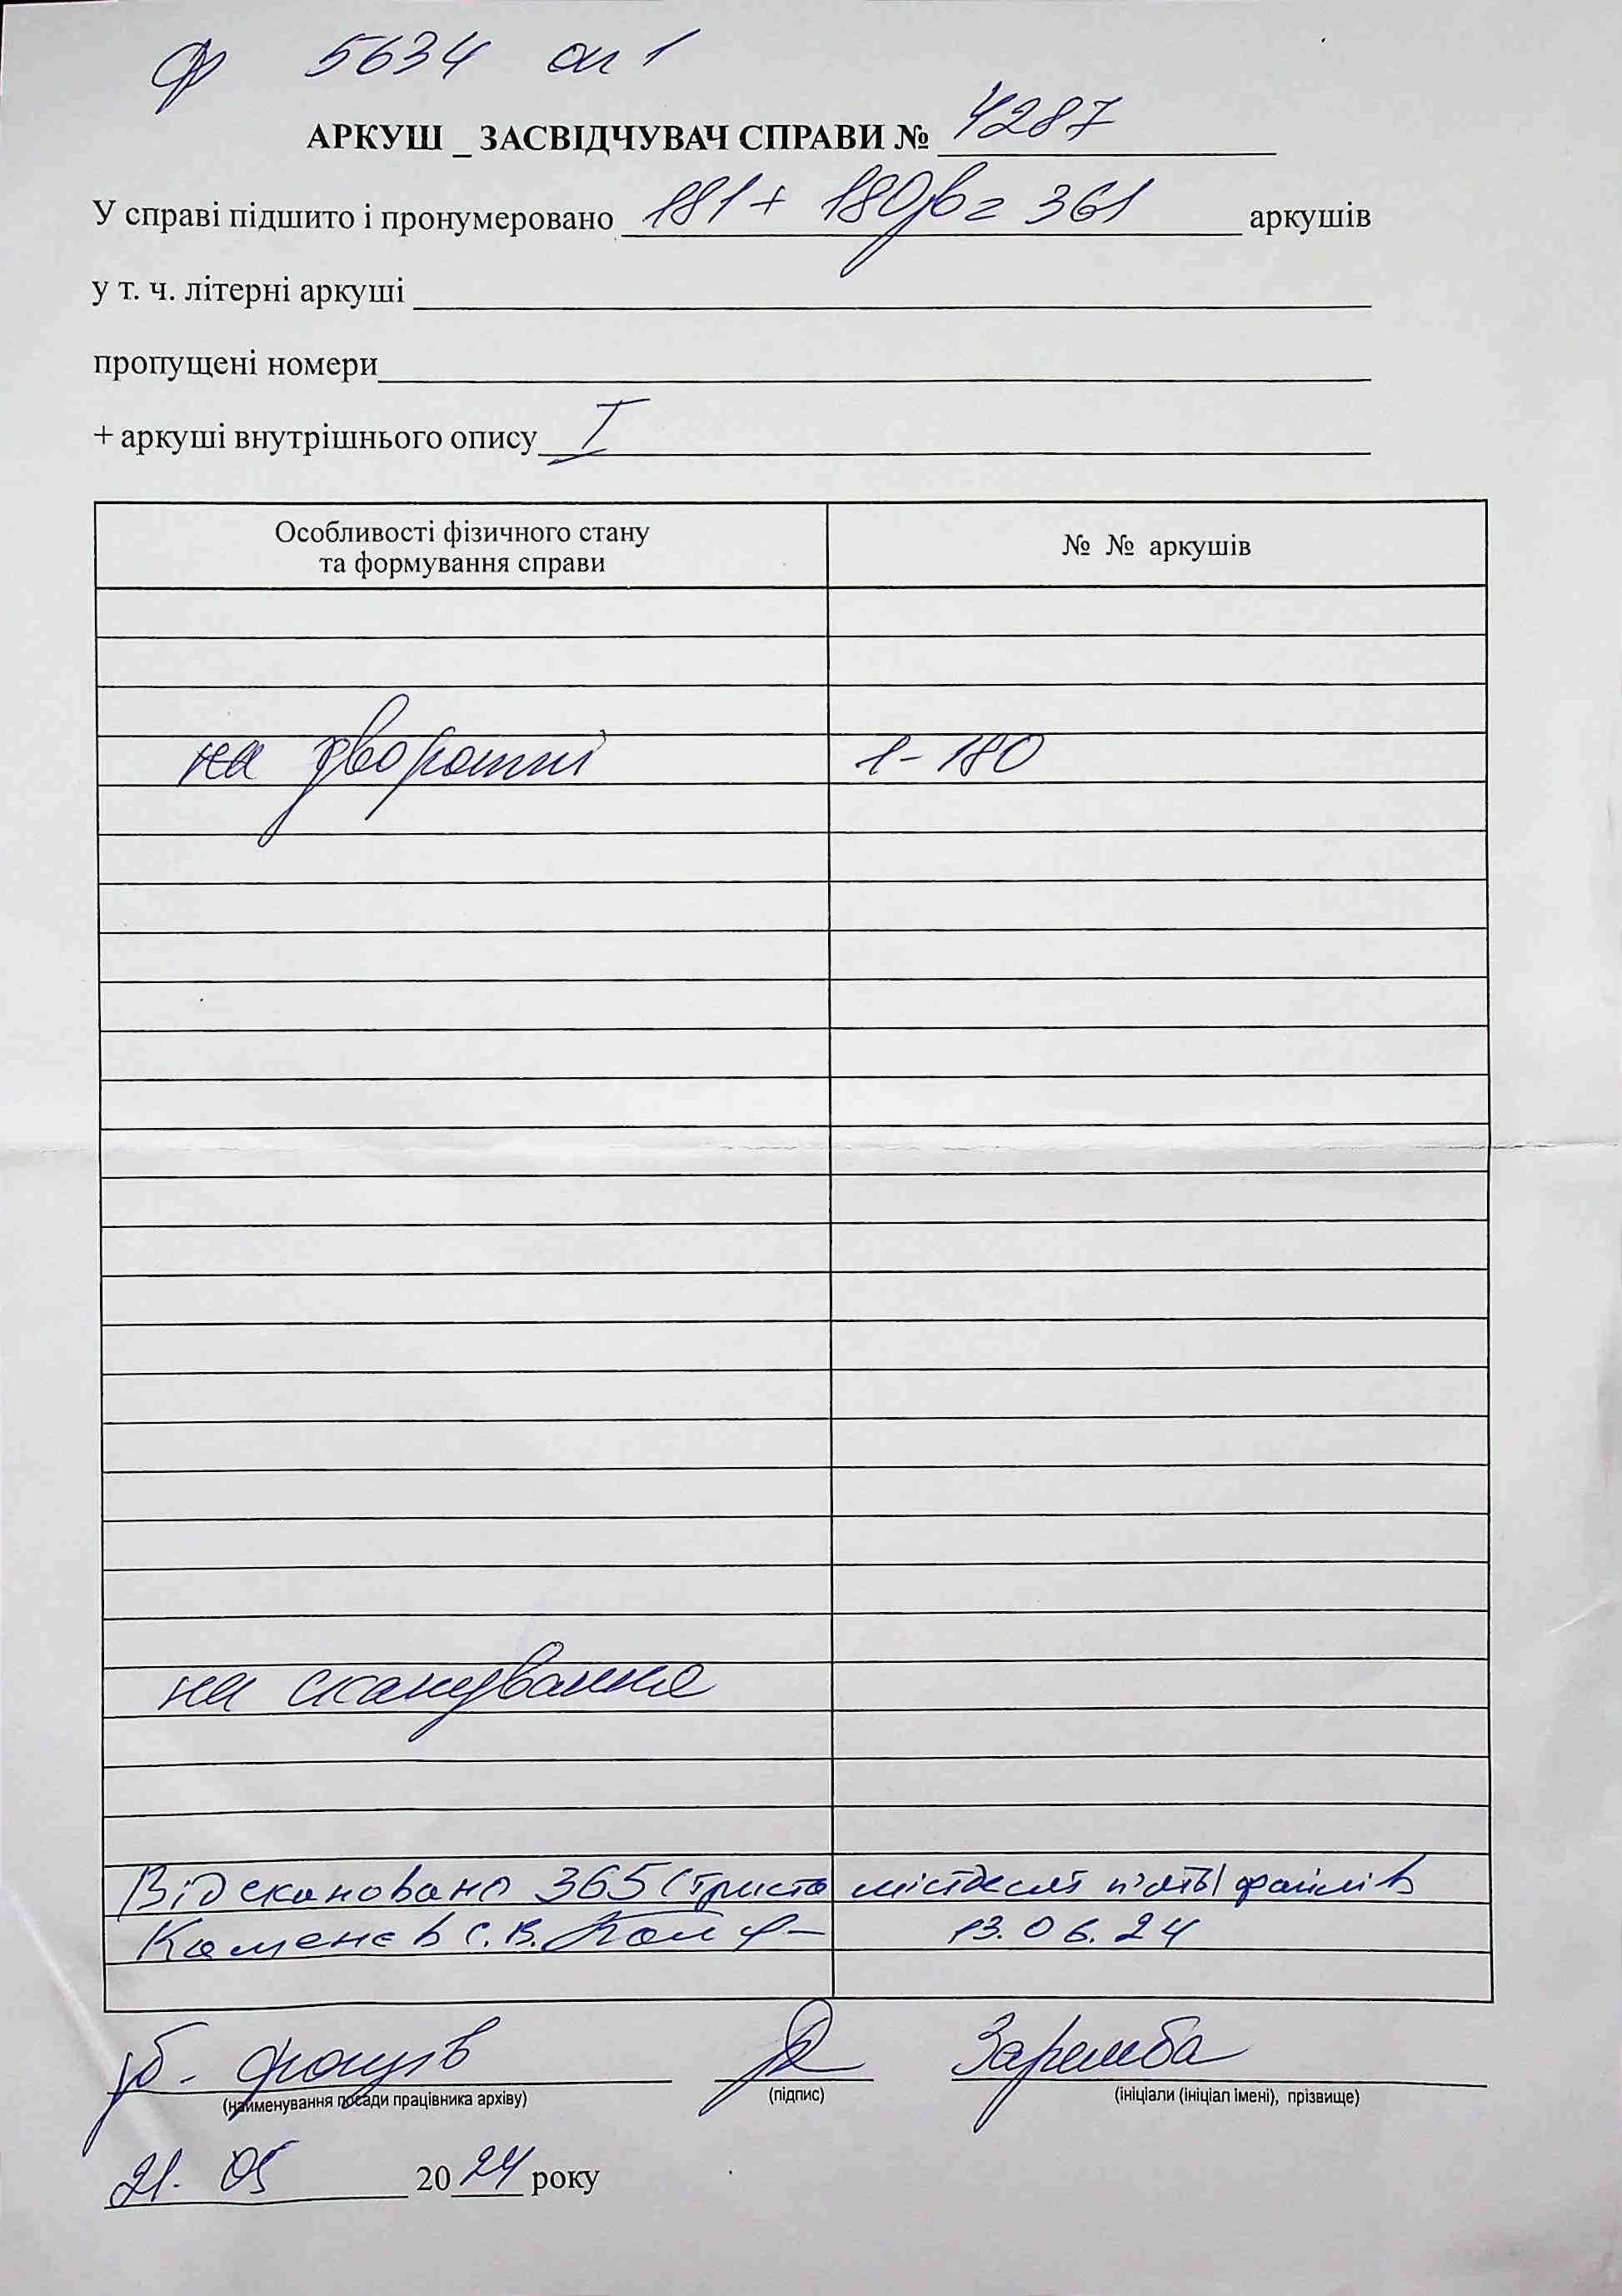 ф 5634 оп 1
АРКУШ _ ЗАСВІДЧУВАЧ СПРАВИ № 4287
У справі підшито і пронумеровано 181 + 180зв = 361 аркушів
у т. ч. літерні аркуші
пропущені номери
+ аркуші внутрішнього опису I
Особливості фізичного стану
та формування справи
№ № аркушів
на звороті 1-180
на сканування
Відскановано 365 (триста шістдесят п'ять) файлів
Каменєв С.В. 13.06.24
зб. фондів Заремба
(найменування посади працівника архіву) (підпис) (ініціали (ініціал імені), прізвище)
21. 05 2024 року